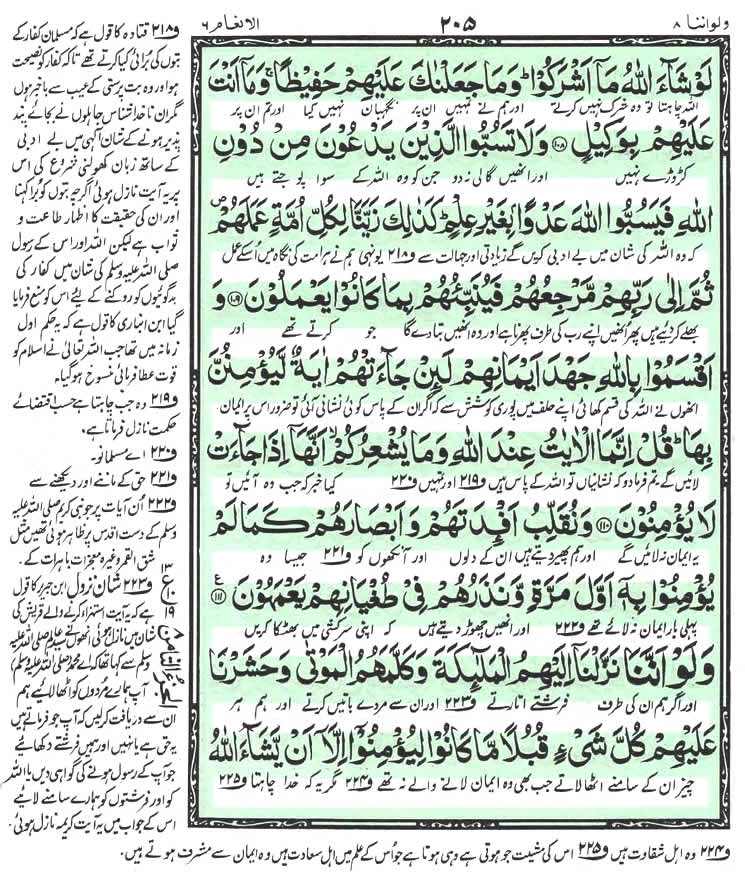 ولواننا ۸
۲۰۵
الانعام ۶
لَوْ شَآءَ اللّٰهُ مَآ اَشْرَكُوْا ؕ وَمَا جَعَلْنٰكَ عَلَيْهِمْ حَفِيْظًا ۚ وَمَآ اَنْتَ
اللہ چاہتا تو وہ شرک نہیں کرتے اور ہم نے تمہیں ان پر نگہبان نہیں کیا اور تم ان پر
عَلَيْهِمْ بِوَكِيْلٍ ۝۱۰۸ وَلَا تَسُبُّوا الَّذِيْنَ يَدْعُوْنَ مِنْ دُوْنِ
کڑوڑے نہیں اور انھیں گالی نہ دو جن کو وہ اللہ کے سوا پوجتے ہیں
اللّٰهِ فَيَسُبُّوا اللّٰهَ عَدْوًۢا بِغَيْرِ عِلْمٍ ؕ كَذٰلِكَ زَيَّنَّا لِكُلِّ اُمَّةٍ عَمَلَهُمْ ۪
کہ وہ اللہ کی شان میں بے ادبی کریں گے زیادتی اور جہالت سے و۲۱۸ یونہی ہم نے ہر امت کی نگاہ میں اسکے عمل
ثُمَّ اِلٰى رَبِّهِمْ مَّرْجِعُهُمْ فَيُنَبِّئُهُمْ بِمَا كَانُوْا يَعْمَلُوْنَ ۝۱۰۹ وَ
بھلے کر دیے ہیں پھر انھیں اپنے رب کی طرف پھرنا ہے اور وہ انھیں بتا دے گا جو کرتے تھے اور
اَقْسَمُوْا بِاللّٰهِ جَهْدَ اَيْمَانِهِمْ لَئِنْ جَآءَتْهُمْ اٰيَةٌ لَّيُؤْمِنُنَّ
انھوں نے اللہ کی قسم کھائی اپنے حلف میں پوری کوشش سے کہ اگر ان کے پاس کوئی نشانی آئی تو ضرور اس پر ایمان
بِهَا ؕ قُلْ اِنَّمَا الْاٰيٰتُ عِنْدَ اللّٰهِ وَمَا يُشْعِرُكُمْ ۙ اَنَّهَآ اِذَا جَآءَتْ
لائیں گے تم فرما دو کہ نشانیاں تو اللہ کے پاس ہیں و۲۱۹ اور تمہیں و۲۲۰ کیا خبر کہ جب وہ آئیں تو
لَا يُؤْمِنُوْنَ ۝۱۱۰ وَنُقَلِّبُ اَفْـِٕدَتَهُمْ وَاَبْصَارَهُمْ كَمَا لَمْ
یہ ایمان نہ لائیں گے اور ہم پھیر دیتے ہیں ان کے دلوں اور آنکھوں کو و۲۲۱ جیسا وہ
يُؤْمِنُوْا بِهٖٓ اَوَّلَ مَرَّةٍ وَّنَذَرُهُمْ فِيْ طُغْيَانِهِمْ يَعْمَهُوْنَ ۝۱۱۱
پہلی بار ایمان نہ لائے تھے و۲۲۲ اور انھیں چھوڑ دیتے ہیں کہ اپنی سرکشی میں بھٹکا کریں
وَلَوْ اَنَّنَا نَزَّلْنَآ اِلَيْهِمُ الْمَلٰٓئِكَةَ وَكَلَّمَهُمُ الْمَوْتٰى وَحَشَرْنَا
اور اگر ہم ان کی طرف فرشتے اتارتے و۲۲۳ اور ان سے مردے باتیں کرتے اور ہم ہر
عَلَيْهِمْ كُلَّ شَيْءٍ قُبُلًا مَّا كَانُوْا لِيُؤْمِنُوْٓا اِلَّآ اَنْ يَّشَآءَ اللّٰهُ
چیز ان کے سامنے اٹھا لاتے جب بھی وہ ایمان لانے والے نہ تھے و۲۲۴ مگر یہ کہ خدا چاہتا و۲۲۵
و۲۱۸ قتادہ کا قول ہے کہ مسلمان کفار کے
بتوں کی برائی کیا کرتے تھے تاکہ کفار کو نصیحت
ہو اور وہ بت پرستی کے عیب سے باخبر ہوں
مگر ان ناخدا شناس جاہلوں نے بجائے پند
پذیر ہونے کے شان الٰہی میں بے ادبی
کے ساتھ زبان کھولنی شروع کی اس
پر یہ آیت نازل ہوئی اگرچہ بتوں کو برا کہنا
اور ان کی حقیقت کا اظہار طاعت و
ثواب ہے لیکن اللہ اور اس کے رسول
صلی اللہ علیہ وسلم کی شان میں کفار کی
بدگوئیوں کو روکنے کے لئے اس کو منع فرمایا
گیا ابن انباری کا قول ہے کہ یہ حکم اول
زمانہ میں تھا جب اللہ تعالیٰ نے اسلام کو
قوت عطا فرمائی منسوخ ہو گیا۔
و۲۱۹ وہ جب چاہتا ہے حسب اقتضائے
حکمت نازل فرماتا ہے،
و۲۲۰ اے مسلمانو۔
و۲۲۱ حق کے ماننے اور دیکھنے سے
و۲۲۲ ان آیات پر جو نبی کریم صلی اللہ علیہ
وسلم کے دست اقدس پر ظاہر ہوئی تھیں مثل
شق القمر وغیرہ معجزات باہرات کے۔
و۲۲۳ شان نزول ابن جریر کا قول
ہے کہ یہ آیت استہزاء کرنے والے قریش کی
شان میں نازل ہوئی انھوں نے سید عالم صلی اللہ علیہ
وسلم سے کہا تھا کہ اے محمد (صلی اللہ علیہ وسلم)
آپ ہمارے مردوں کو اٹھا لائیے ہم
ان سے دریافت کرلیں کہ آپ جو فرماتے ہیں
یہ حق ہے یا نہیں اور ہمیں فرشتے دکھائیے
جو آپ کے رسول ہونے کی گواہی دیں یا اللہ
کو اور فرشتوں کو ہمارے سامنے لائیے
اس کے جواب میں یہ آیت کریمہ نازل ہوئی۔
۱۳
ع
۱۰
۱۹
و۲۲۴ وہ اہل شقاوت ہیں و۲۲۵ اس کی مشیت جو ہوتی ہے وہی ہوتا ہے جو اس کے علم میں اہل سعادت ہیں وہ ایمان سے مشرف ہوتے ہیں۔